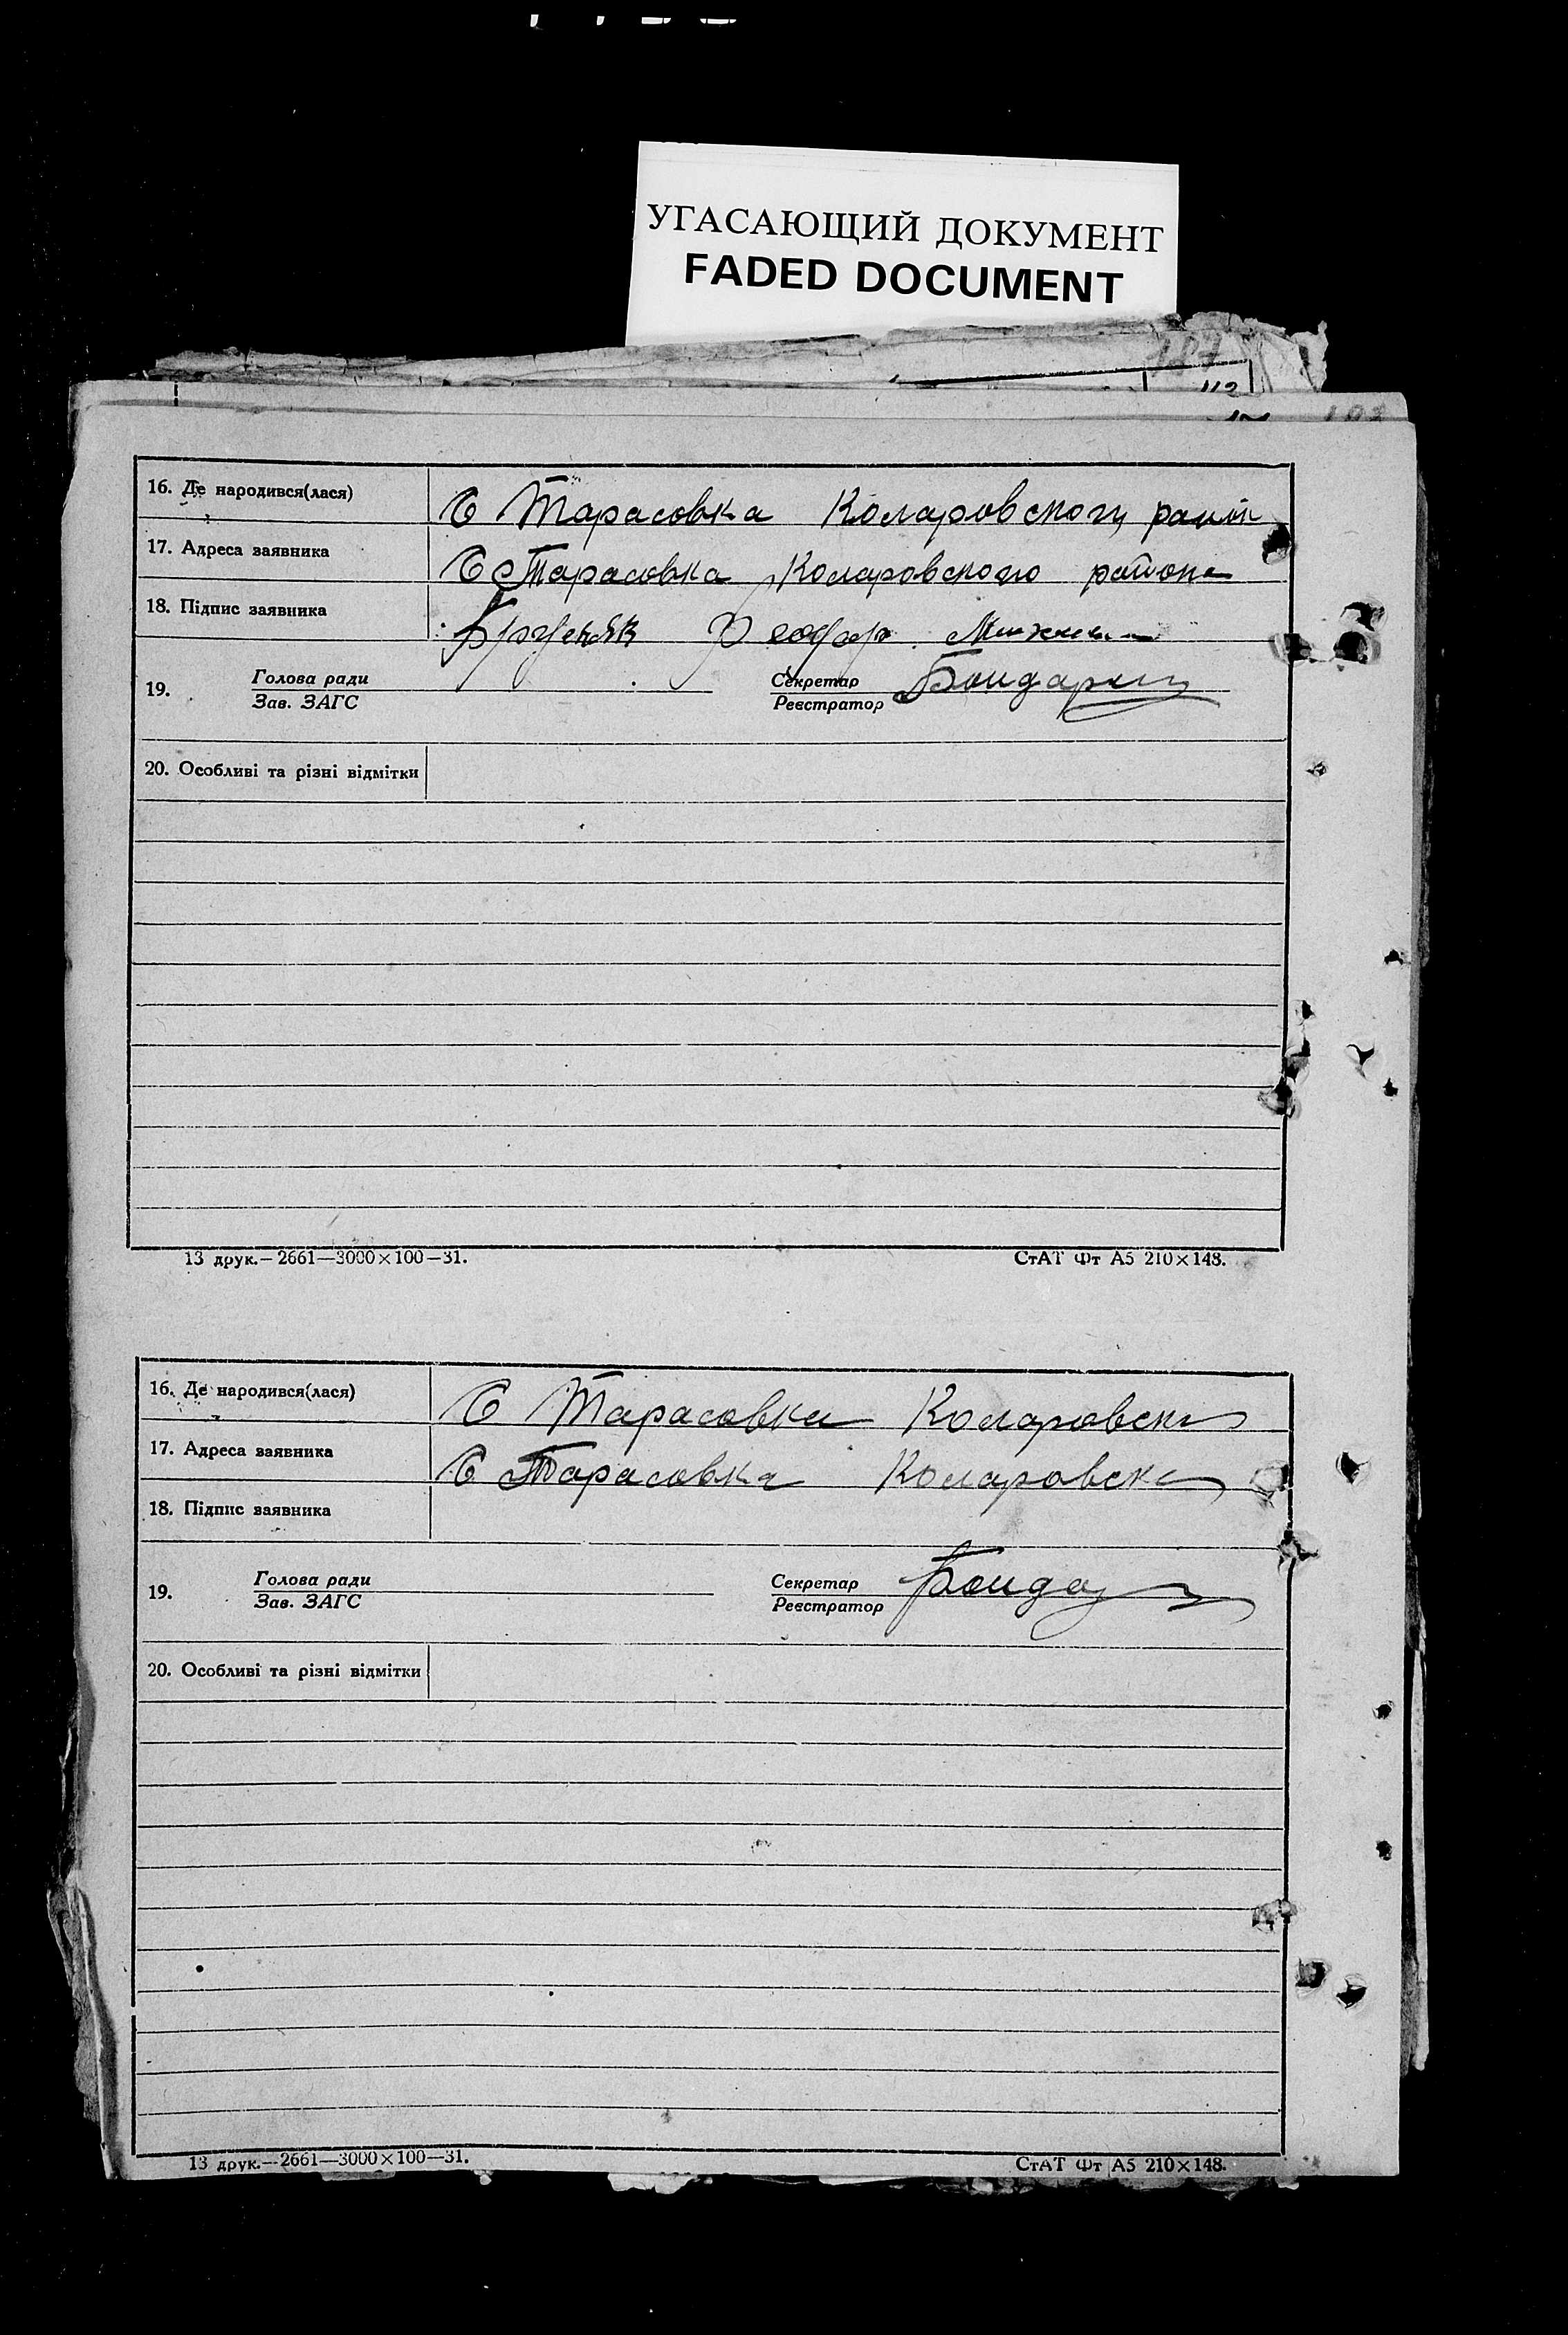 УГАСАЮЩИЙ ДОКУМЕНТ
FADED DOCUMENT
187
16. Де народився(лася) С Тарасовка Коларовского район
17. Адреса заявника С Тарасовка Коларовского района
18. Підпис заявника Феодор
19. Голова ради Секретар Бондарен
Зав. ЗАГС Реєстратор
20. Особливі та різні відмітки
13 друк.—2661—3000×100—31. СтАТ Фт А5 210×148.
16. Де народився(лася) С Тарасовка Коларовск
17. Адреса заявника С Тарасовка Коларовск
18. Підпис заявника
19. Голова ради Секретар Бонда
Зав. ЗАГС Реєстратор
20. Особливі та різні відмітки
13 друк.—2661—3000×100—31. СтАТ Фт А5 210×148.